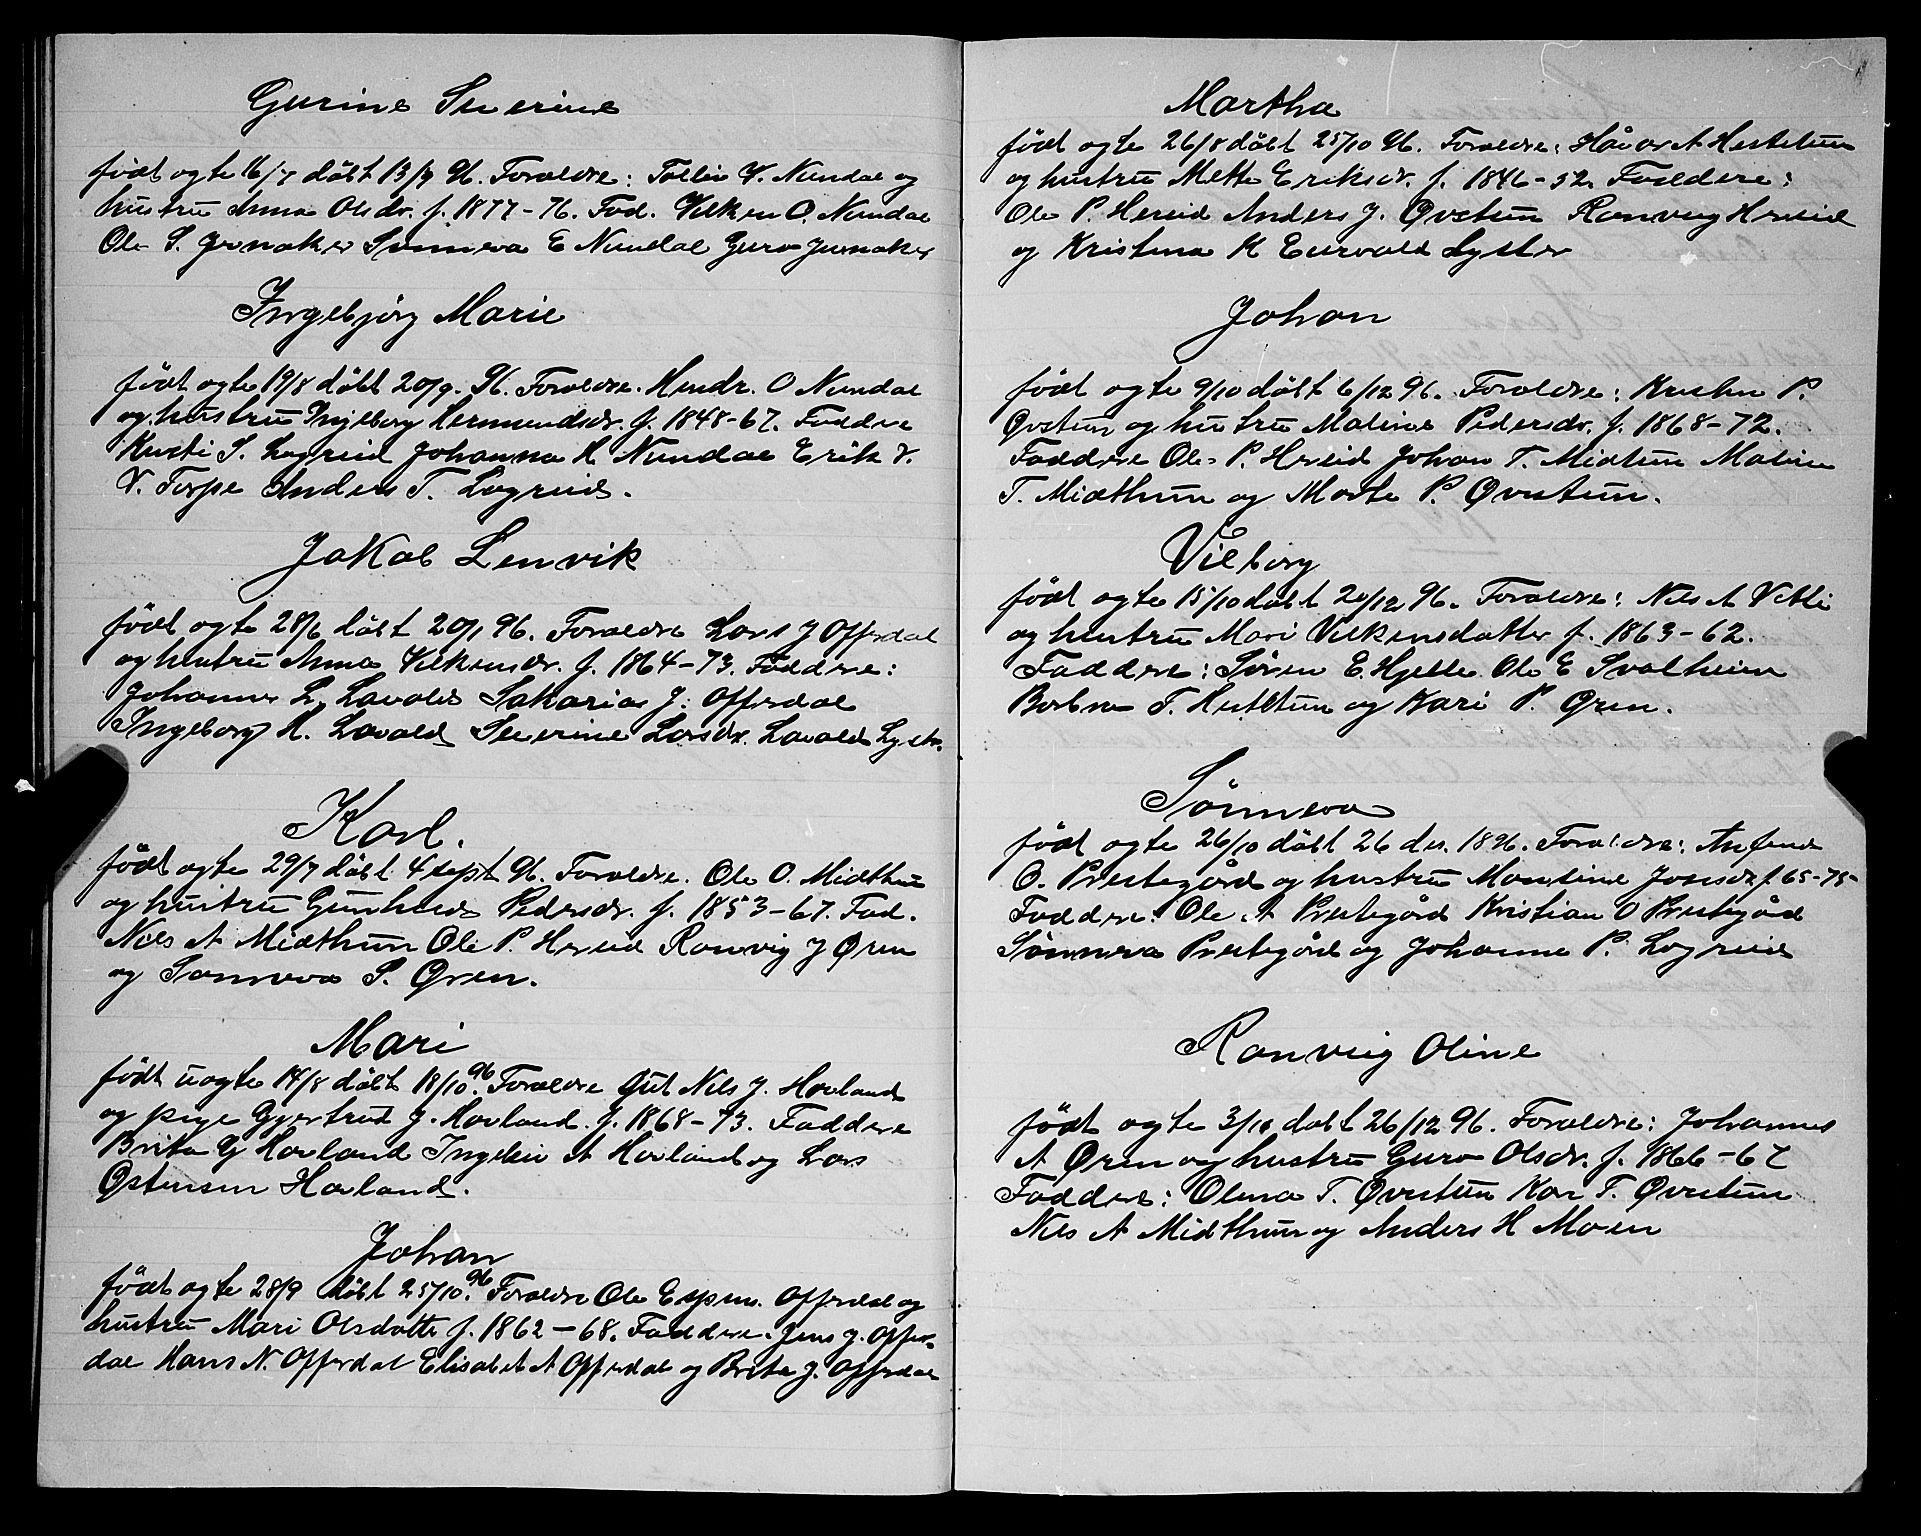 Gurine Severine
født ægte 16/7 døbt 13/9 96. Forældre: Tollev V. Nundal og
hustru Anna Olsdr. f. 1877-76. Fad. Vilken O. Nundal
Ole S. Jernaker Sunneva E Nundal Guro Jernaker
Ingebjørg Marie
født ægte 19/8 døbt 20/9. 96. Forældre. Hendr. O Nundal
og hustru Ingeborg Hermundsdr. f. 1848-67. Faddere
Kristi S. Lægreid Johanna H Nundal Erik V.
V. Torpe Anders T. Lægreid.
Jakob Lenvik
født ægte 28/6 døbt 20/9 96. Forældre Lars J Offerdal
og hustru Anna Vilkensdr. f. 1864-73. Faddere:
Johannes L. Lavold Sakarias J. Offerdal
Ingeborg H. Lavold Severine Larsdr. Lavold Lyster
Karl.
født ægte 29/7 døbt 4 sept 96. Forældre. Ole O. Midthun
og hustru Gunhild Pedersdr. f. 1853-67. Fad.
Nils A Midthun Ole P. Hereid Ranvig J Øren
og Sønneva S. Øren.
Mari
født uægte 14/8 døbt 18/10 96. Forældre Gut Nils J. Hovland
og pige Gjertrud J. Hovland. f. 1868-73. Faddere
Brita G Hovland Ingeleiv A Hovland og Lars
Østensen Hovland.
Johan
født ægte 28/9 døbt 25/10. 96 Forældre Ole Espens. Offerdal og
hustru Mari Olsdatter f. 1862-68. Faddere. Jens J. Offer-
dal Hans N. Offerdal Elisabet A Offerdal og Brita J. Offerdal
Martha
født ægte 26/8 døbt 25/10 96. Forældre: Håvar A Hestetun
og hustru Mette Eriksdr. f. 1846-52. Faddere:
Ole P. Hereid Anders J. Øvstun Ranveig Hereid
og Kristina K Eurvold Lyster
Johan
født ægte 9/10 døbt 6/12 96. Forældre: Kristen P.
Øvstun og hustru Maline Pedersdr. f. 1868-72.
Faddere Ole P. Hereid Johan T. Midtun Maline
T. Midthun og Marte P. Øvstun.
Vilborg
født ægte 15/10 døbt 20/12 96. Forældre: Nils A Vetti
og hustru Mari Vilkensdatter f. 1863-62.
Faddere: Søren E. Hjelle Ole E Svalheim
Barbra T. Hestetun og Kari P. Øren.
Sønneva
født ægte 26/10 døbt 26 des. 1896. Forældre: Anfind
O. Prestegård og hustru Monsine Jonsdr f 65-75
Faddere. Ole A Prestegård Kristian O Prestegård
Sønneva Prestegård og Johanne P. Lægreid
Ranveig Oline
født ægte 3/10 døbt 26/12 96. Forældre: Johannes
A Øren og hustru Guro Olsdr. f. 1866-67
Faddere: Olina T. Øvstun Kari T. Øvstun
Nils A Midthun og Anders H Moen